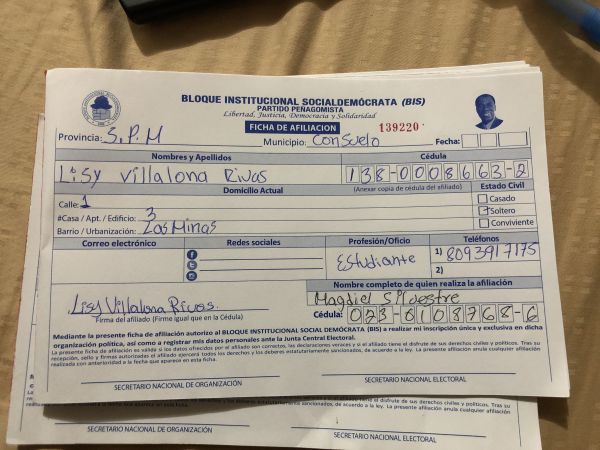 BLOQUE INSTITUCIONAL SOCIALDEMÓCRATA (BIS)
PARTIDO PEÑAGOMISTA
Libertad, Justicia, Democracia y Solidaridad
FICHA DE AFILIACION 139220
Provincia: S.P.M Municipio: Consuelo Fecha:
Nombres y Apellidos Cédula
Lisy Villalona Rivas 138-0008663-2
Domicilio Actual (Anexar copia de cédula del afiliado) Estado Civil
Calle: 1 Casado
#Casa / Apt. / Edificio: 3 Soltero
Barrio / Urbanización: Las Minas Conviviente
Correo electrónico Redes sociales Profesión/Oficio Teléfonos
Estudiante 1) 8093917175
2)
Nombre completo de quien realiza la afiliación
Lisy Villalona Rivas. Magdiel Silvestre
Firma del afiliado (Firme igual que en la Cédula) Cédula: 023-0108768-6
Mediante la presente ficha de afiliación autorizo al BLOQUE INSTITUCIONAL SOCIAL DEMÓCRATA (BIS) a realizar mi inscripción única y exclusiva en dicha
organización política, así como a registrar mis datos personales ante la Junta Central Electoral.
La presente ficha de afiliación es válida si los datos ofrecidos por el afiliado son correctos, las declaraciones veraces y si el afiliado tiene el disfrute de sus derechos civiles y políticos. Tras su
recepción, sello y firmas autorizadas el afiliado ejercerá todos los derechos y los deberes estatutariamente sancionados, de acuerdo a la ley. La presente afiliación anula cualquier afiliación
realizada con anterioridad a la fecha que aparece en esta ficha.
SECRETARIO NACIONAL DE ORGANIZACIÓN SECRETARIO NACIONAL ELECTORAL
SECRETARIO NACIONAL DE ORGANIZACIÓN SECRETARIO NACIONAL ELECTORAL